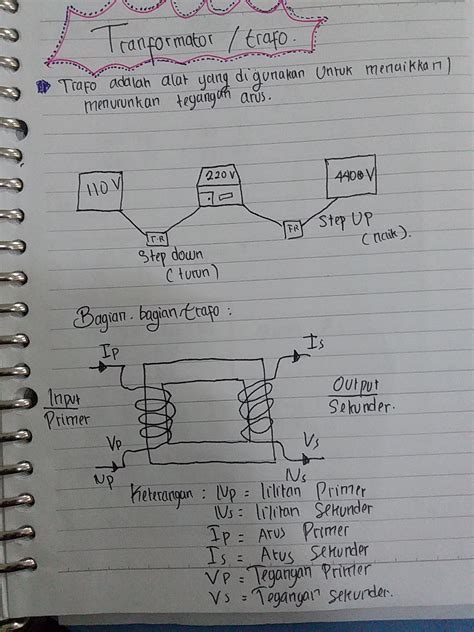 Tranformator / trafo.
Trafo adalah alat yang digunakan untuk menaikkan /
menurunkan tegangan arus.
110 V
220 V
4400 V
T.R
TR
Step down
(turun)
Step UP
(naik).
Bagian-bagian trafo :
Ip
Is
Input
Primer
Output
Sekunder.
Vp
Vs
Np
Ns
Keterangan : Np = lilitan Primer
Ns = lilitan Sekunder
Ip = Arus Primer
Is = Arus Sekunder
Vp = Tegangan Primer
Vs = Tegangan Sekunder.